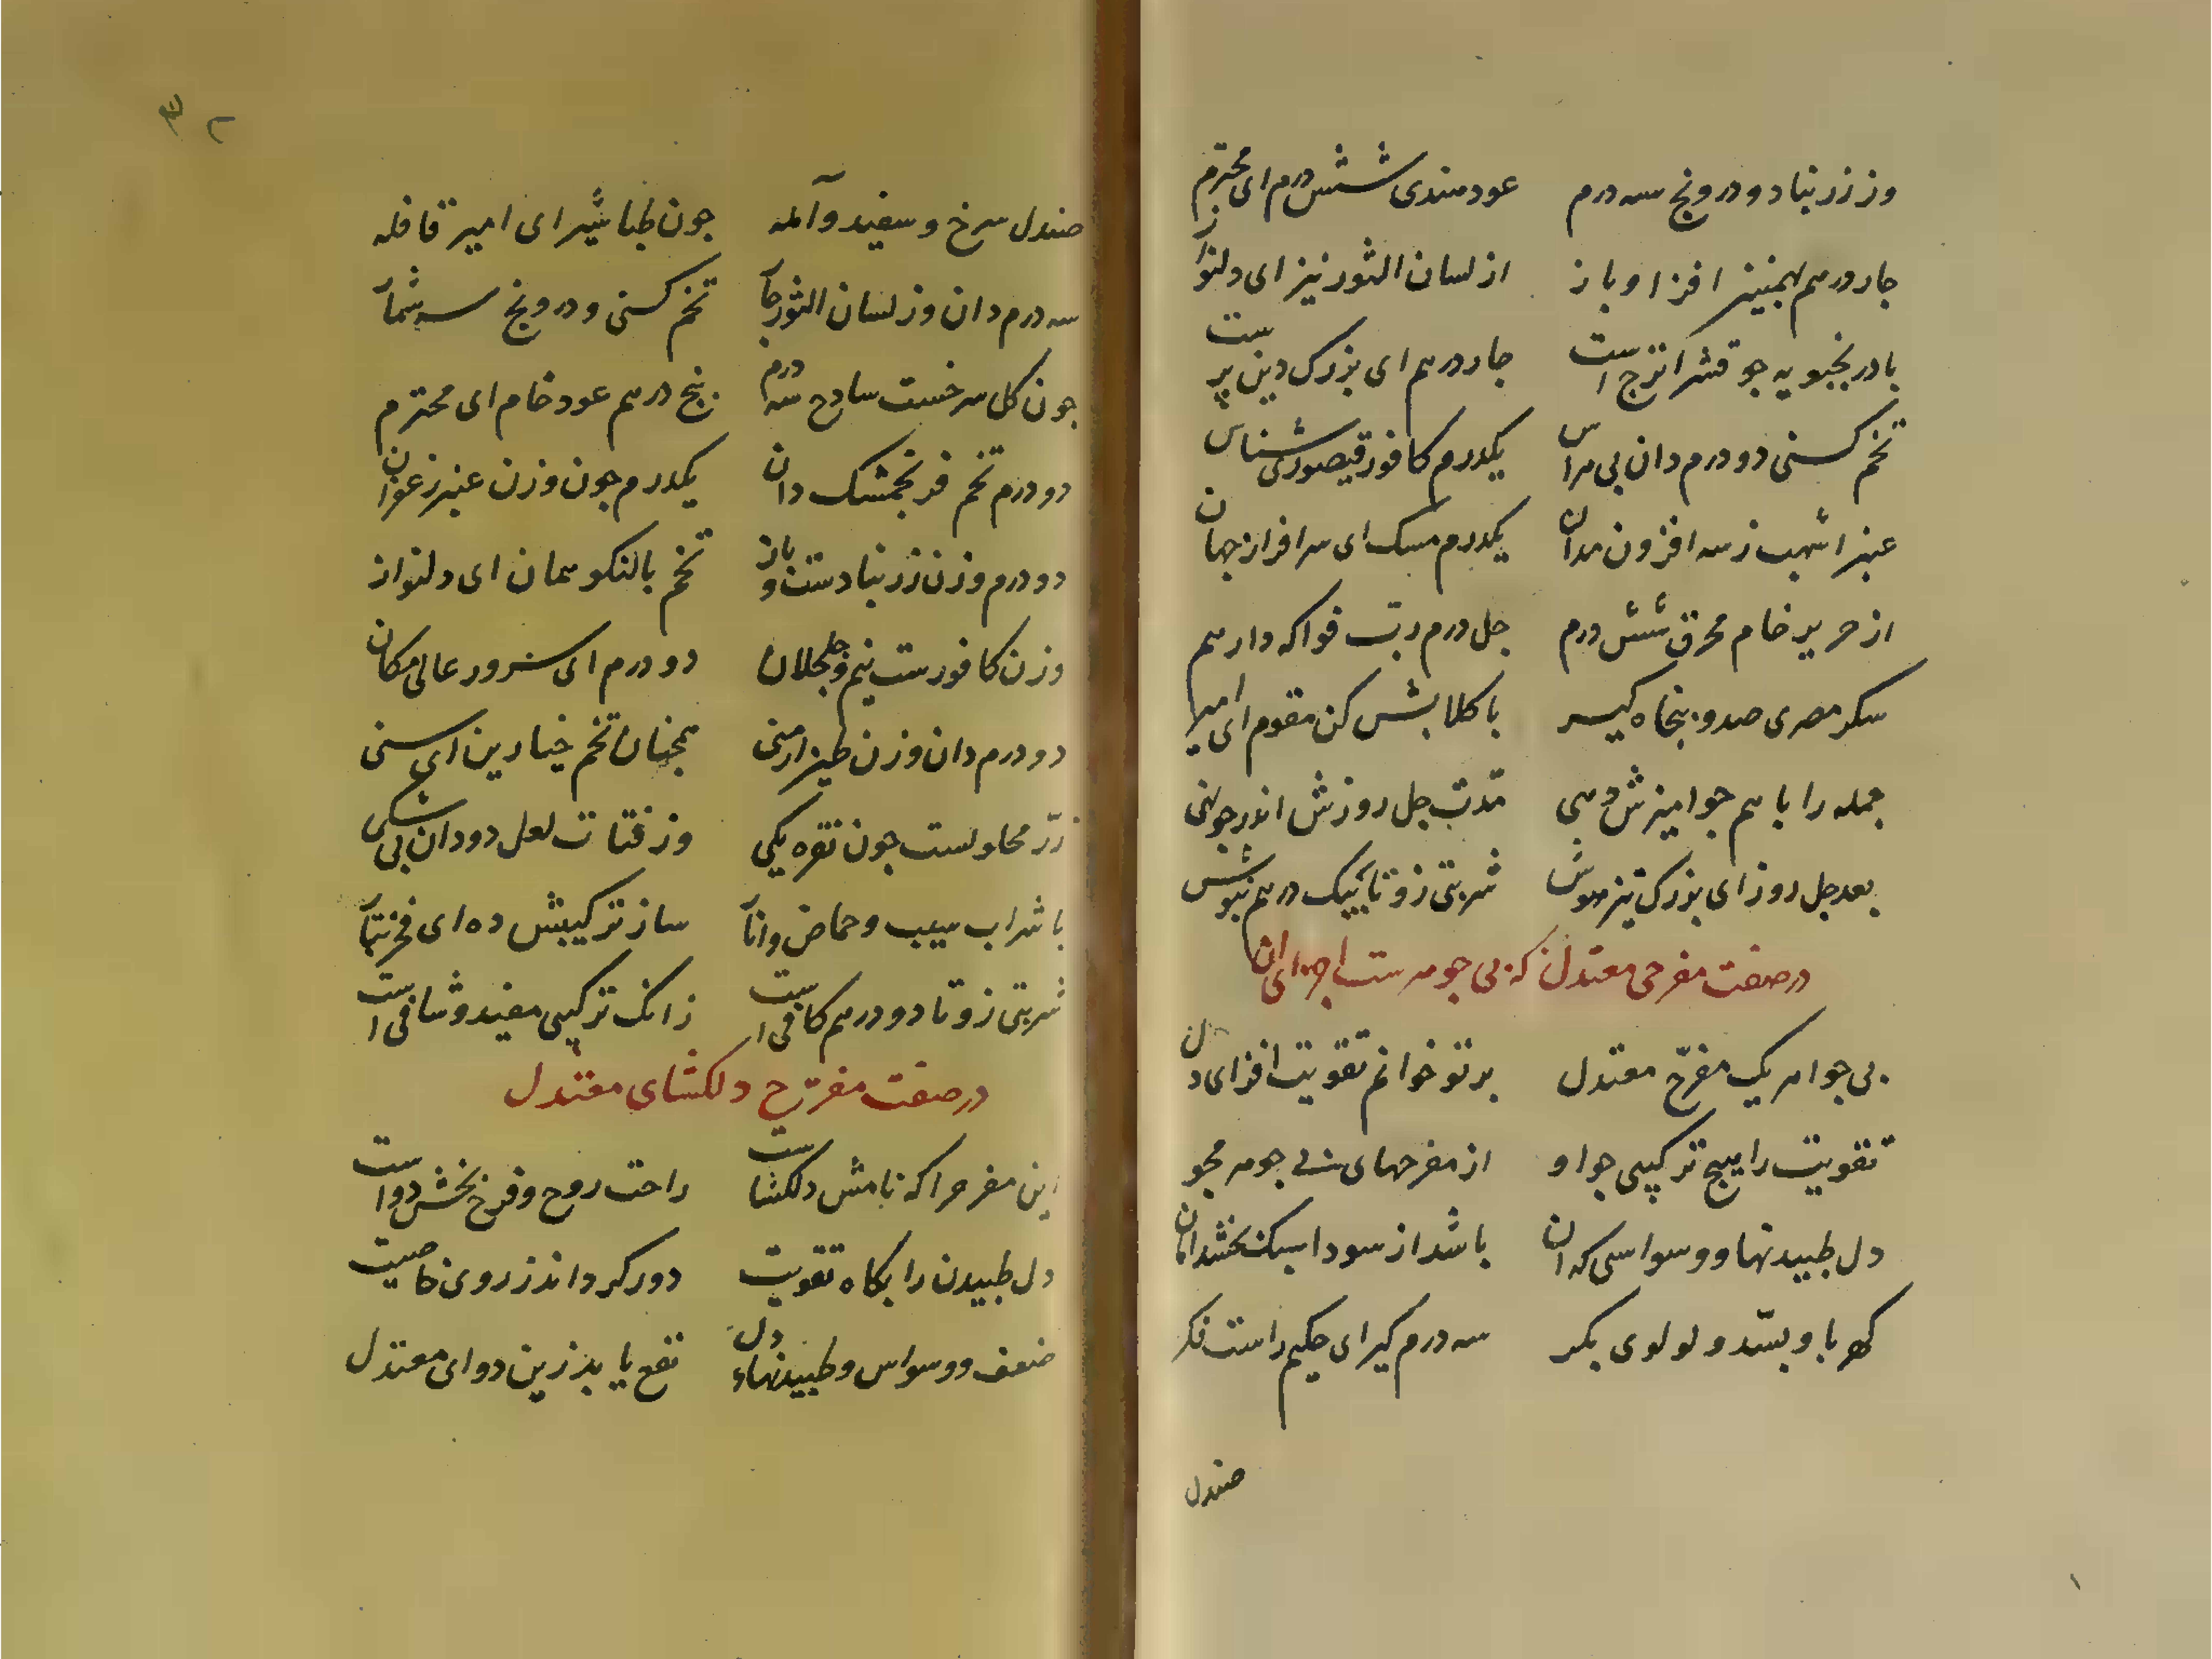 وز زرنباد و درونج سه درم عود هندی شش درم ای محترم
جار درهم بهمنین افزا و باز از لسان الثور نیز ای دلنواز
بادرنجبویه جو قشر اترج است جار درهم ای بزرک دین پرست
تخم کسنی دو درم دان بی هراس یکدرم کافور قیصوری شناس
عنبر اشهب ز سه افزون مدان یکدرم مسک ای سرافراز جهان
از حریر خام محرق شش درم جل درم رب فواکه دار هم
سکر مصری صد و پنجاه کیر با کلابش کن مقوم ای امیر
جمله را با هم جو امیزش دهی مدت جل روزش اندر جو نهی
بعد جل روز ای بزرک تیزهوش شربتی زو تا بیک درهم بنوش
در صفت مفرحی معتدل که بی جوهرست اجزای ان
بی جواهر یک مفرّح معتدل بر تو خوانم تقویت افزای دل
تقویت را هیج ترکیبی جو او از مفرحهای بی جوهر مجو
دل طبیدنها و وسواسی که ان باشد از سودا سبک بخشد امان
کهربا و بسّد و لولوی بکر سه درم کیر ای حکیم راست فکر
صندل
۳۲
صندل سرخ و سفید و آمله جون طباشیر ای امیر قافله
سه درم دان وز لسان الثور جار تخم کسنی و درونج سه شمار
جون کل سرخست ساذج سه درم پنج درهم عود خام ای محترم
دو درم تخم فرنجمشک دان یکدرم جون وزن عنبر زعفران
دو درم وزن زرنبادست و باز تخم بالنکو همان ای دلنواز
وزن کافورست نیم و جلجلان دو درم ای سرور عالی مکان
دو درم دان وزن طین ارمنی همجنان تخم خیارین ای سنی
زرّ محلولست جون نقره یکی وز فتات لعل دو دان بی شکی
با شراب سیب و حماض و انار ساز ترکیبش ده ای فخر تبار
شربتی زو تا دو درهم کافی است زانک ترکیبی مفید و شافی است
در صفت مفرّح دلکشای معتدل
این مفرح را که نامش دلکشاست راحت روح و فرح بخش دواست
دل طبیدن را بکاه تقویت دور کرداند ز روی خاصیت
ضعف و وسواس و طبیدنهاء دل نفع یابد زین دوای معتدل